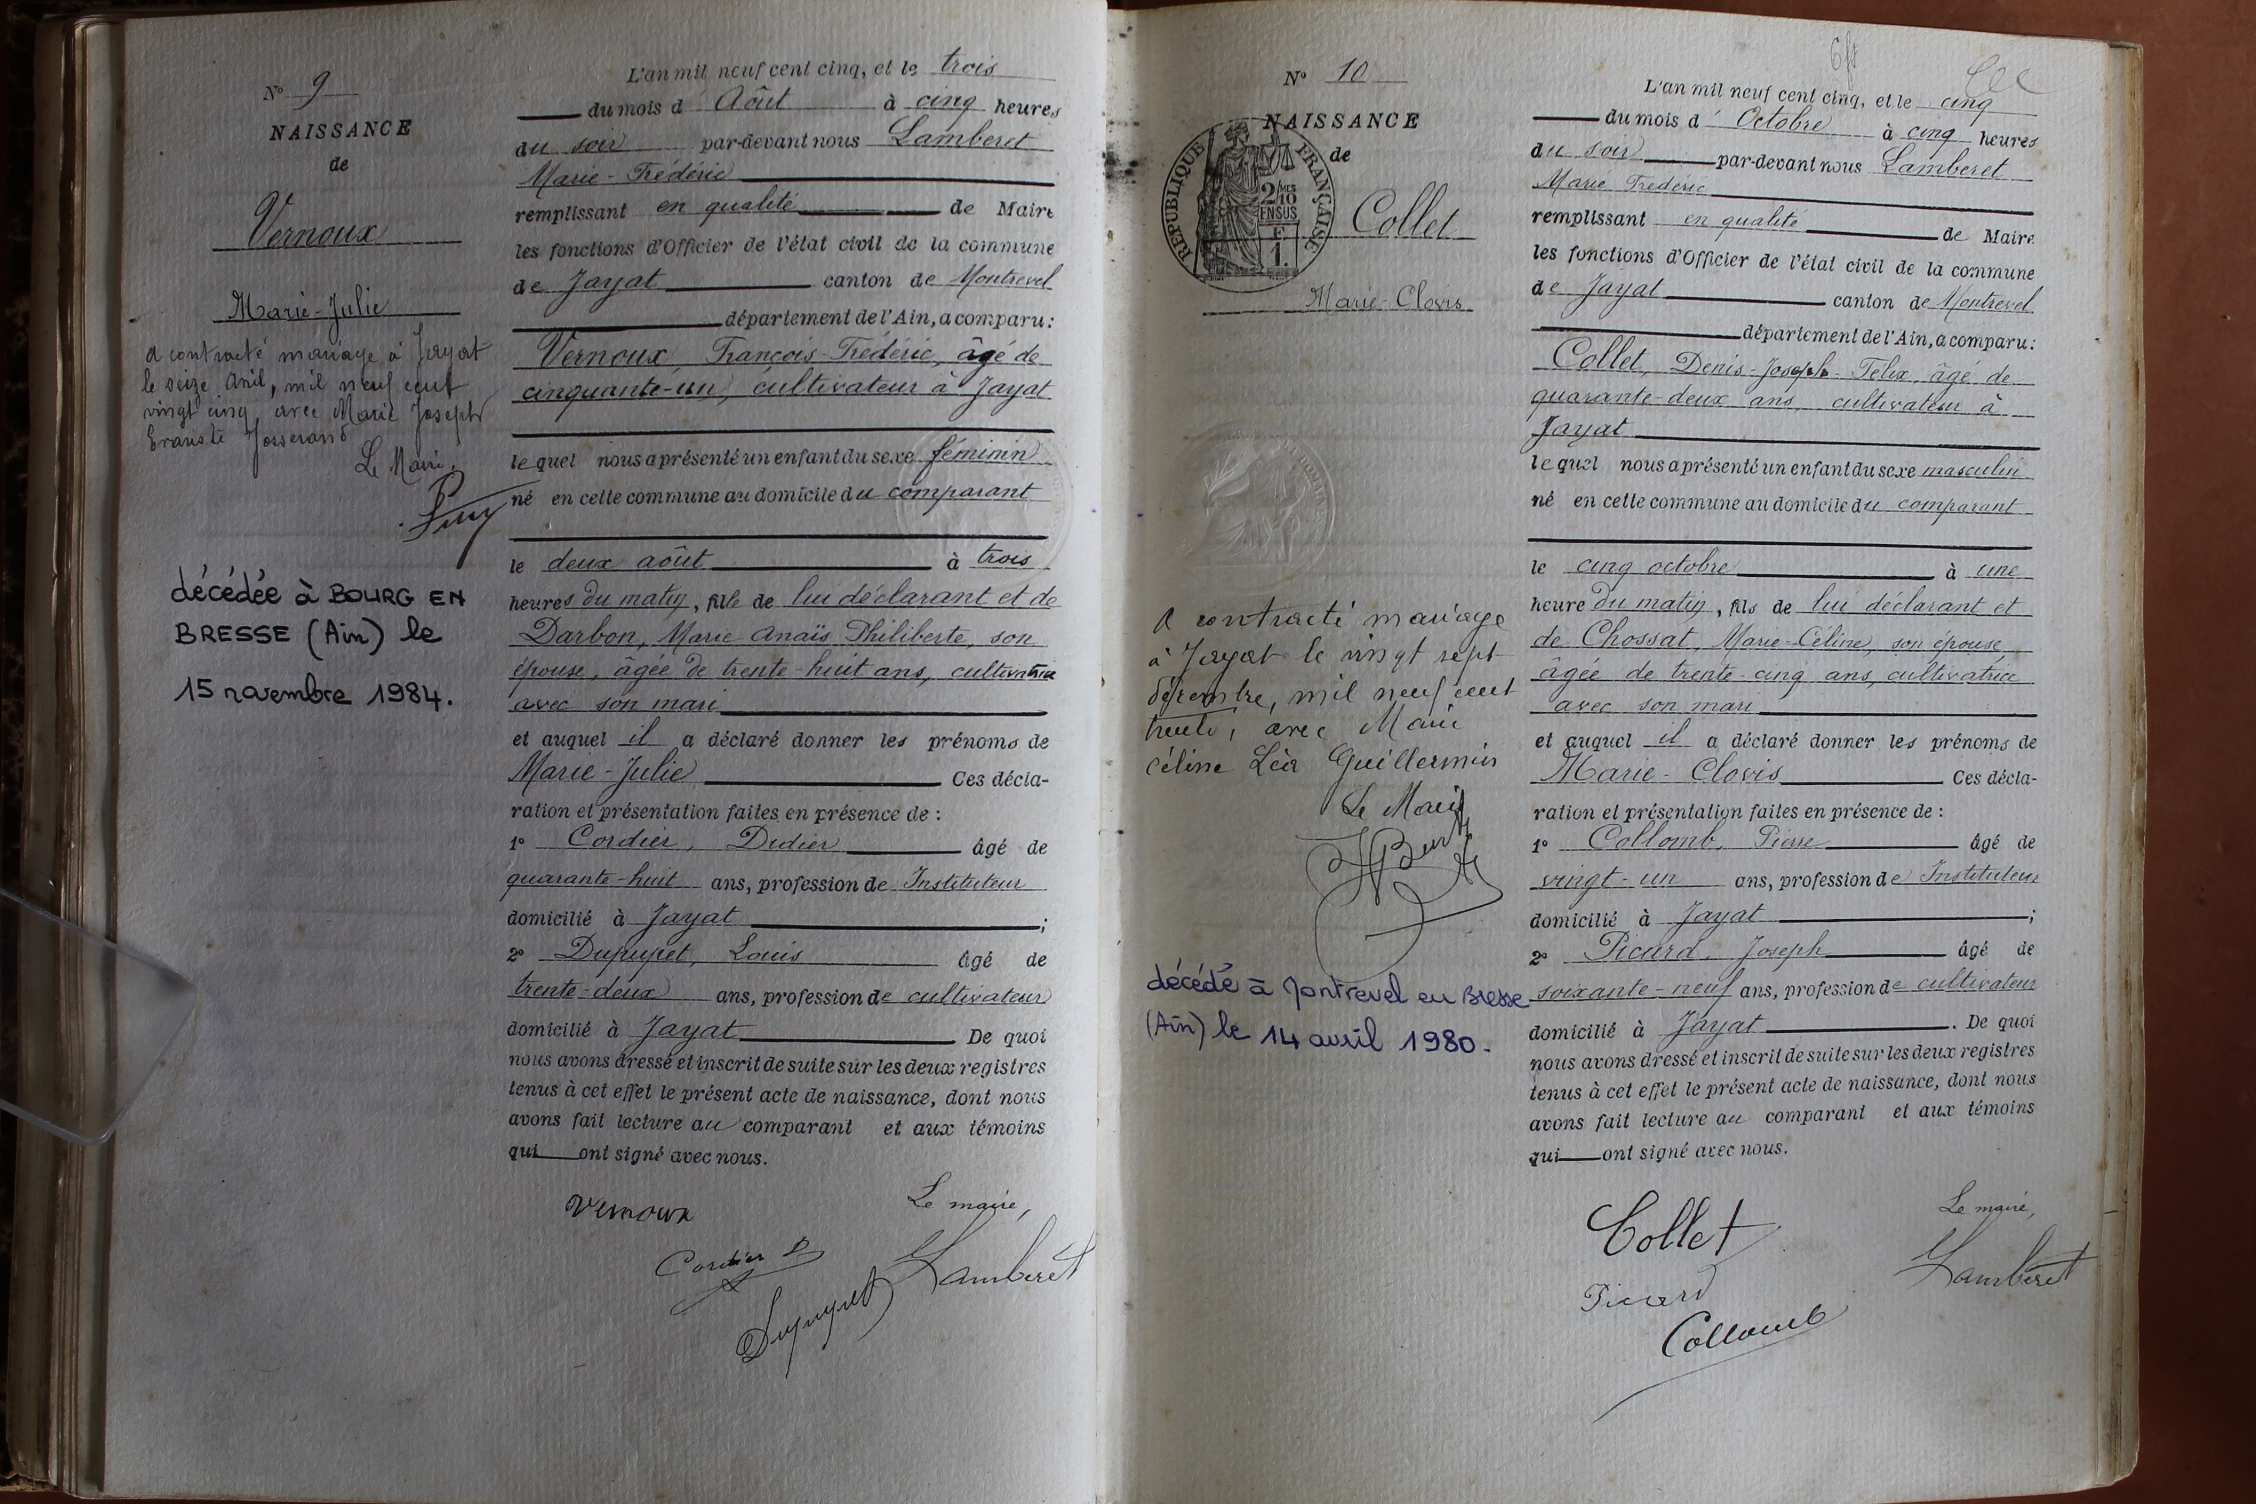 Nº 9
NAISSANCE
de
Vernoux
Marie-Julie
a contracté mariage à Jayat
le seize avril, mil neuf cent
vingt cinq, avec Marie Joseph
Evariste Josserand
Le Maire,
décédée à BOURG EN
BRESSE (Ain) le
15 novembre 1984.
L'an mil neuf cent cinq, et le trois
du mois d'Août à cinq heures
du soir par-devant nous Lamberet
Marie-Frédéric
remplissant en qualité de Maire
les fonctions d'Officier de l'état civil de la commune
de Jayat canton de Montrevel
département de l'Ain, a comparu:
Vernoux, François-Frédéric, âgé de
cinquante-un, cultivateur à Jayat
lequel nous a présenté un enfant du sexe féminin
né en cette commune au domicile du comparant
le deux août à trois
heures du matin, fille de lui déclarant et de
Darbon, Marie Anaïs Philiberte, son
épouse, âgée de trente-huit ans, cultivatrice
avec son mari
et auquel il a déclaré donner les prénoms de
Marie-Julie Ces décla-
ration et présentation faites en présence de:
1º Cordier, Didier âgé de
quarante-huit ans, profession de Instituteur
domicilié à Jayat ;
2º Dupupet, Louis âgé de
trente-deux ans, profession de cultivateur
domicilié à Jayat De quoi
nous avons dressé et inscrit de suite sur les deux registres
tenus à cet effet le présent acte de naissance, dont nous
avons fait lecture au comparant et aux témoins
qui ont signé avec nous.
Vernoux
Le maire,
Cordier D
Lamberet
Dupupet
Nº 10
NAISSANCE
de
RÉPUBLIQUE FRANÇAISE
2/10
EN SUS
F
1.
Collet
Marie-Clovis
A contracté mariage
à Jayat le vingt sept
décembre, mil neuf cent
trente, avec Marie
Céline Léa Guillermin
Le Maire
décédé à Montrevel en Bresse
(Ain) le 14 avril 1980.
L'an mil neuf cent cinq, et le cinq
du mois d'Octobre à cinq heures
du soir par-devant nous Lamberet
Marie Frédéric
remplissant en qualité de Maire
les fonctions d'Officier de l'état civil de la commune
de Jayat canton de Montrevel
département de l'Ain, a comparu:
Collet, Denis-Joseph-Felix, âgé de
quarante-deux ans, cultivateur à
Jayat
lequel nous a présenté un enfant du sexe masculin
né en cette commune au domicile du comparant
le cinq octobre à une
heure du matin, fils de lui déclarant et
de Chossat, Marie-Céline, son épouse
âgée de trente-cinq ans, cultivatrice
avec son mari
et auquel il a déclaré donner les prénoms de
Marie-Clovis Ces décla-
ration et présentation faites en présence de:
1º Collomb, Pierre âgé de
vingt-un ans, profession de Instituteur
domicilié à Jayat ;
2º Picard, Joseph âgé de
soixante-neuf ans, profession de cultivateur
domicilié à Jayat . De quoi
nous avons dressé et inscrit de suite sur les deux registres
tenus à cet effet le présent acte de naissance, dont nous
avons fait lecture au comparant et aux témoins
qui ont signé avec nous.
Collet
Le maire,
Lamberet
Picard
Collomb